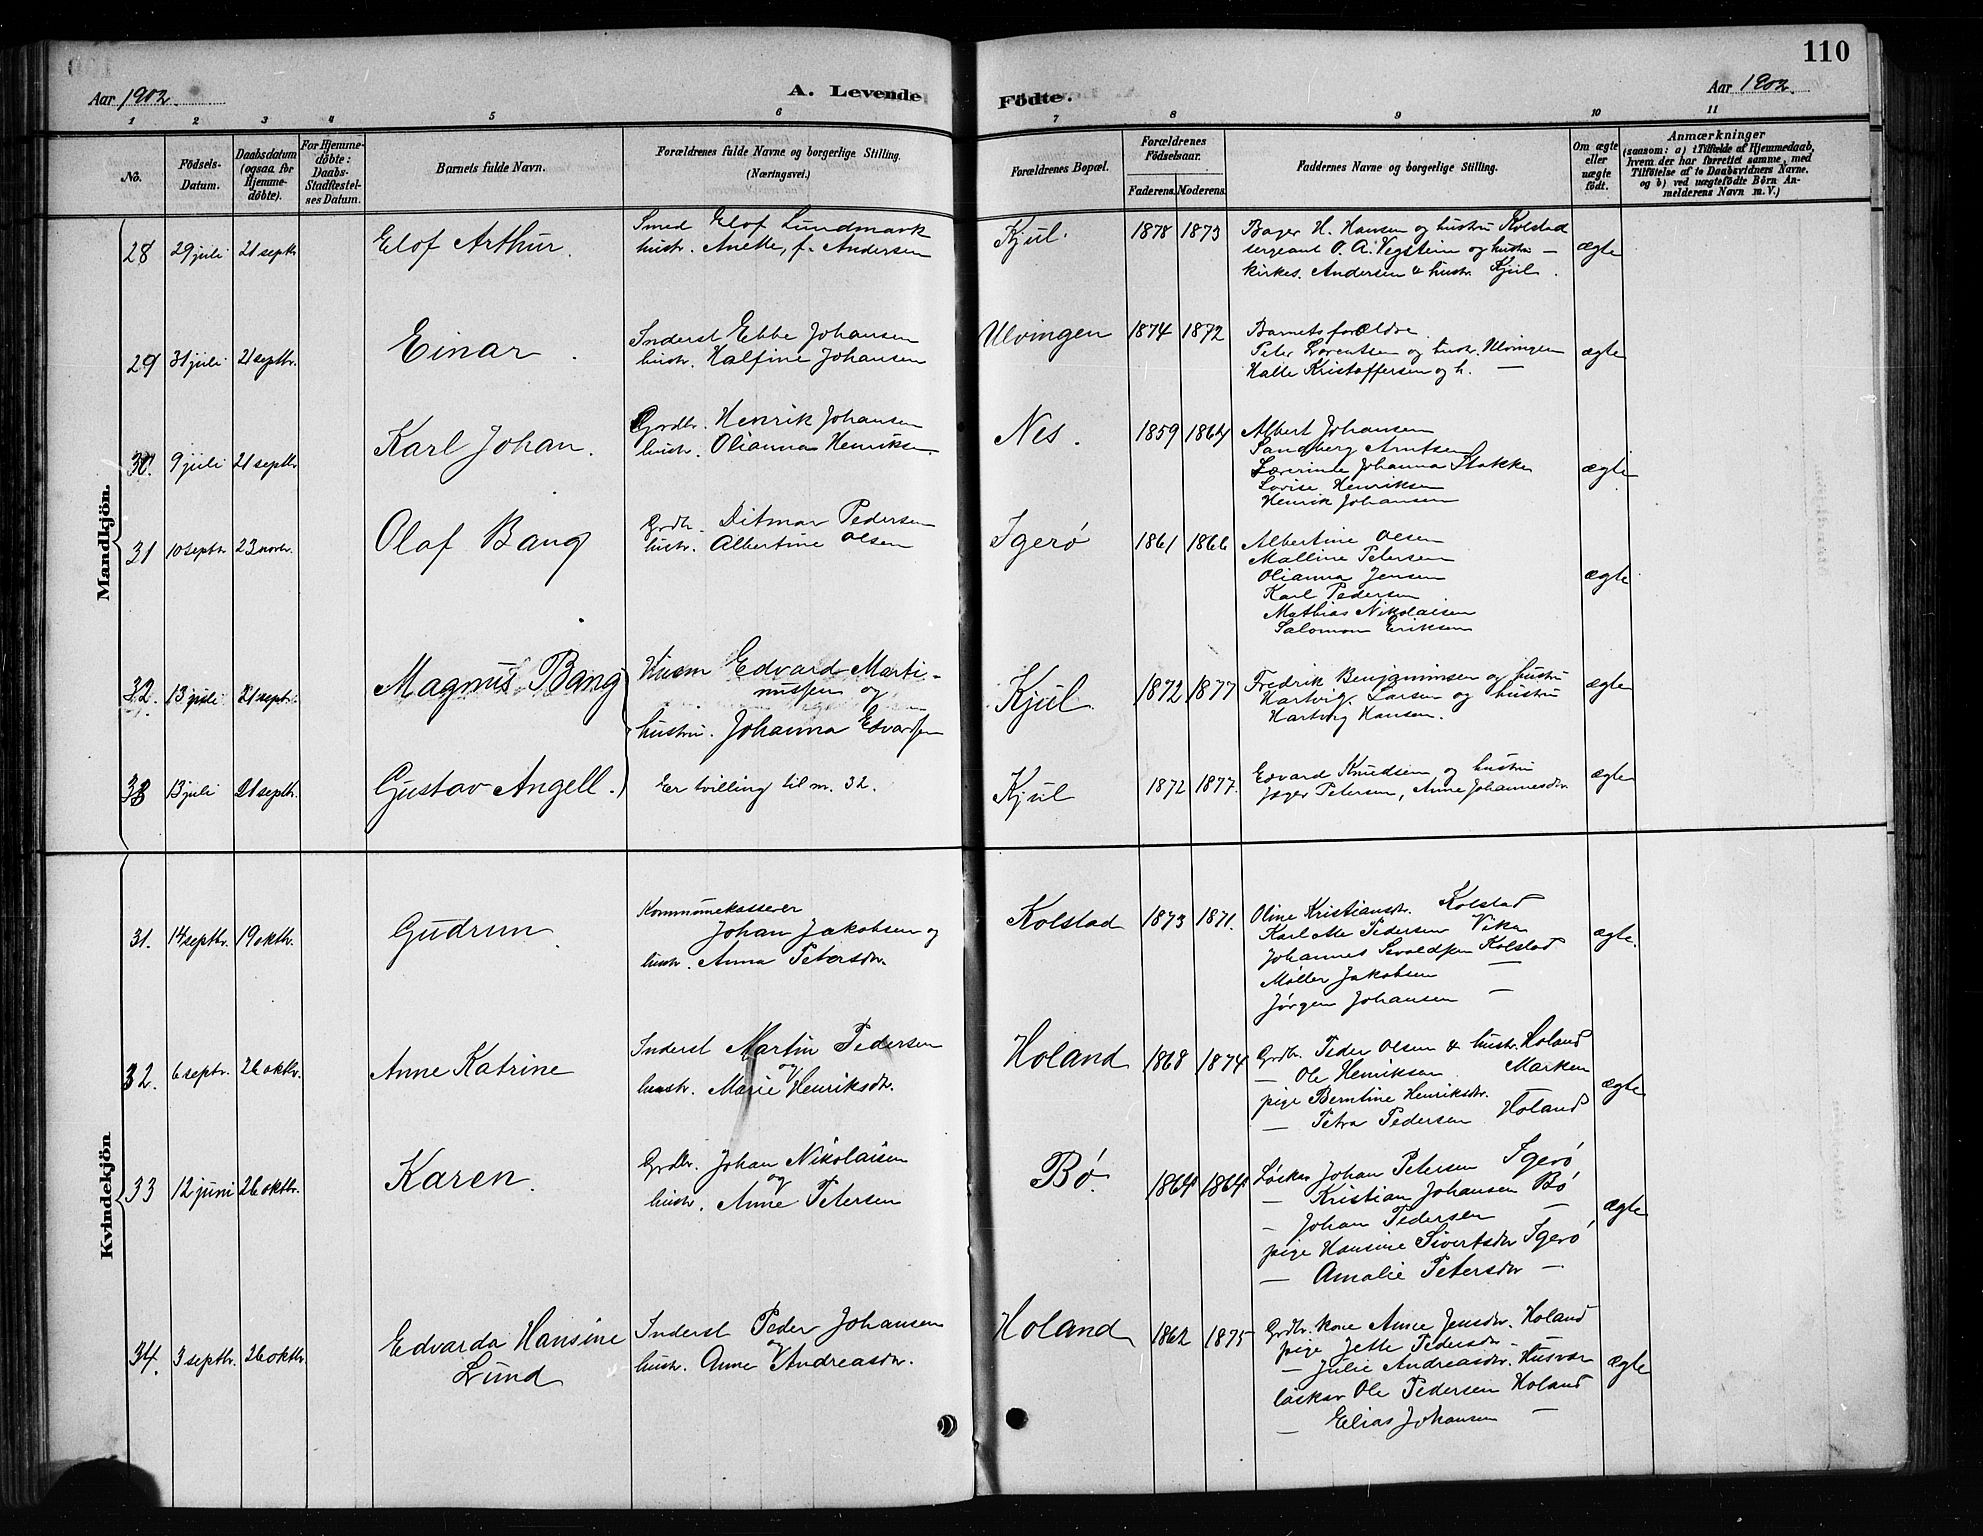 110
Aar 1902. A. Levende Födte. Aar 1902.
1 2 3 4 5 6 7 8 9 10 11
No. Födsels-Datum. Daabsdatum (ogsaa for Hjemmedöbte). For Hjemmedöbte: Daabs-Stadfæstelses Datum. Barnets fulde Navn. Forældrenes fulde Navne og borgerlige Stilling. (Næringsvei.) Forældrenes Bopæl. Forældrenes Födselsaar. Faderens. Moderens. Faddernes Navne og borgerlige Stilling. Om ægte eller uægte födt. Anmærkninger (saasom: a) i Tilfælde af Hjemmedaab, hvem der har forrettet samme, med Tilföielse af to Daabsvidners Navne, og b) ved uægtefödte Börn Anmelderens Navn m. V.)
Mandkjön.
28 29 juli 21 septbr Elof Arthur. Smed Elof Lundmark Kjul. 1878 1873 Bager H. Hansen og hustru Kolstad ægte
hustr. Anette, f. Andersen sergeant O. A. Vegstein og hustru —
kirkes. Andersen & hustr. Kjul.
29 31 juli 21 septbr. Einar. Inderst Ebbe Johansen Ulvingen 1874 1872 Barnets forældre ægte
hustr. Halfine Johansen Peter Lorentsen og hustr. Ulvingen
Halle Kristoffersen og h. —
30. 9 juli 21 septbr Karl Johan. Grdbr. Henrik Johansen Nes. 1859 1864 Albert Johansen ægte
hustr. Olianna Henriksen. Sandberg Arntsen
Johanna Stokke
Lovise Henriksen
Henrik Johansen
31 10 septbr 23 novbr. Olaf Bang Grdbr. Ditmar Pedersen Igerö 1861 1866 Albertine Olsen ægte
hustr. Albertine Olsen Malline Petersen
Olianna Jensen
Karl Pedersen
Mathias Nikolaisen
Salomon Eriksen
32. 13 juli 21 septbr. Magnus Bang Husm Edvard Marti- Kjul. 1872 1877 Fredrik Benjaminsen og hustru ægte
nussen og Hartvig Larsen og hustru
hustru. Johanna Edvardsen Hartvig Hansen.
33 13 juli 21 septbr. Gustav Angell. Er tvilling til nr. 32. Kjul 1872 1877. Edvard Knudsen og hustru ægte
Petersen, Anne Johannesdtr
Kvindekjön
31. 14 septbr. 19 oktbr. Gudrun Kommunekasserer Kolstad 1873 1871. Oline Kristiansdtr. Kolstad ægte.
Johan Jakobsen og Karl Pedersen Vika
hustr. Anna Petersdtr. Johannes Sivaldsen Kolstad
Möller Jakobsen —
Jörgen Johansen —
32. 6 septbr. 26 oktbr. Anne Katrine Inderst Martin Pedersen Holand 1868 1874 Grdbr. Peder Olsen & hustr. Holand ægte
og — Ole Henriksen Marken
hustr. Marie Henriksdtr. pige Berntine Henriksdtr.
— Petra Pedersen Holand
33 12 juni 26 oktbr. Karen. Grdbr. Johan Nikolaisen Bö. 1864 1864 Löskar Johan Petersen Igerö ægte
og — Kristian Johansen Bö
hustr. Anne Petersen — Johan Pedersen —
pige Hansine Sivertsdtr Igerö
— Amalie Petersdtr —
34. 3 septbr. 26 oktbr. Edvarda Hansine Lund Inderst Peder Johansen Holand 1862 1875 Grdbr. kone Anne Jensdtr. Holand ægte
og pige Jette Pedersdtr —
hustr. Anne Andreasdtr. — Julie Andreasdtr. Husvær
löskar Ole Pedersen Holand
— Elias Johansen —